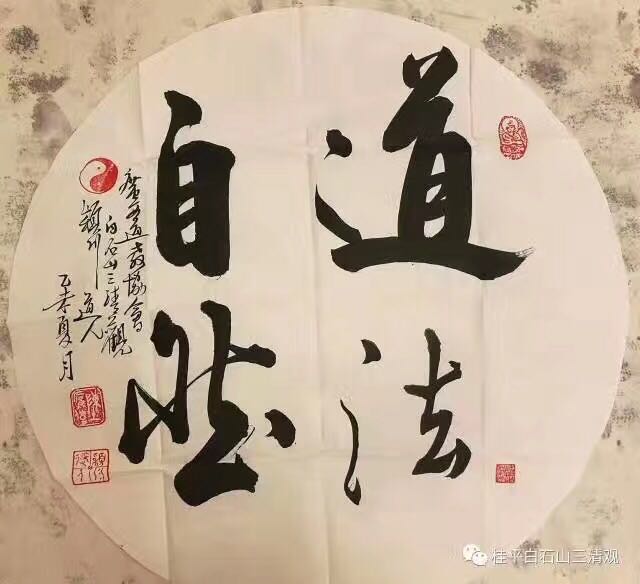 道法
自然
廣西道教協會
白石山三清觀
穎川道人
乙未夏月
桂平白石山三清观